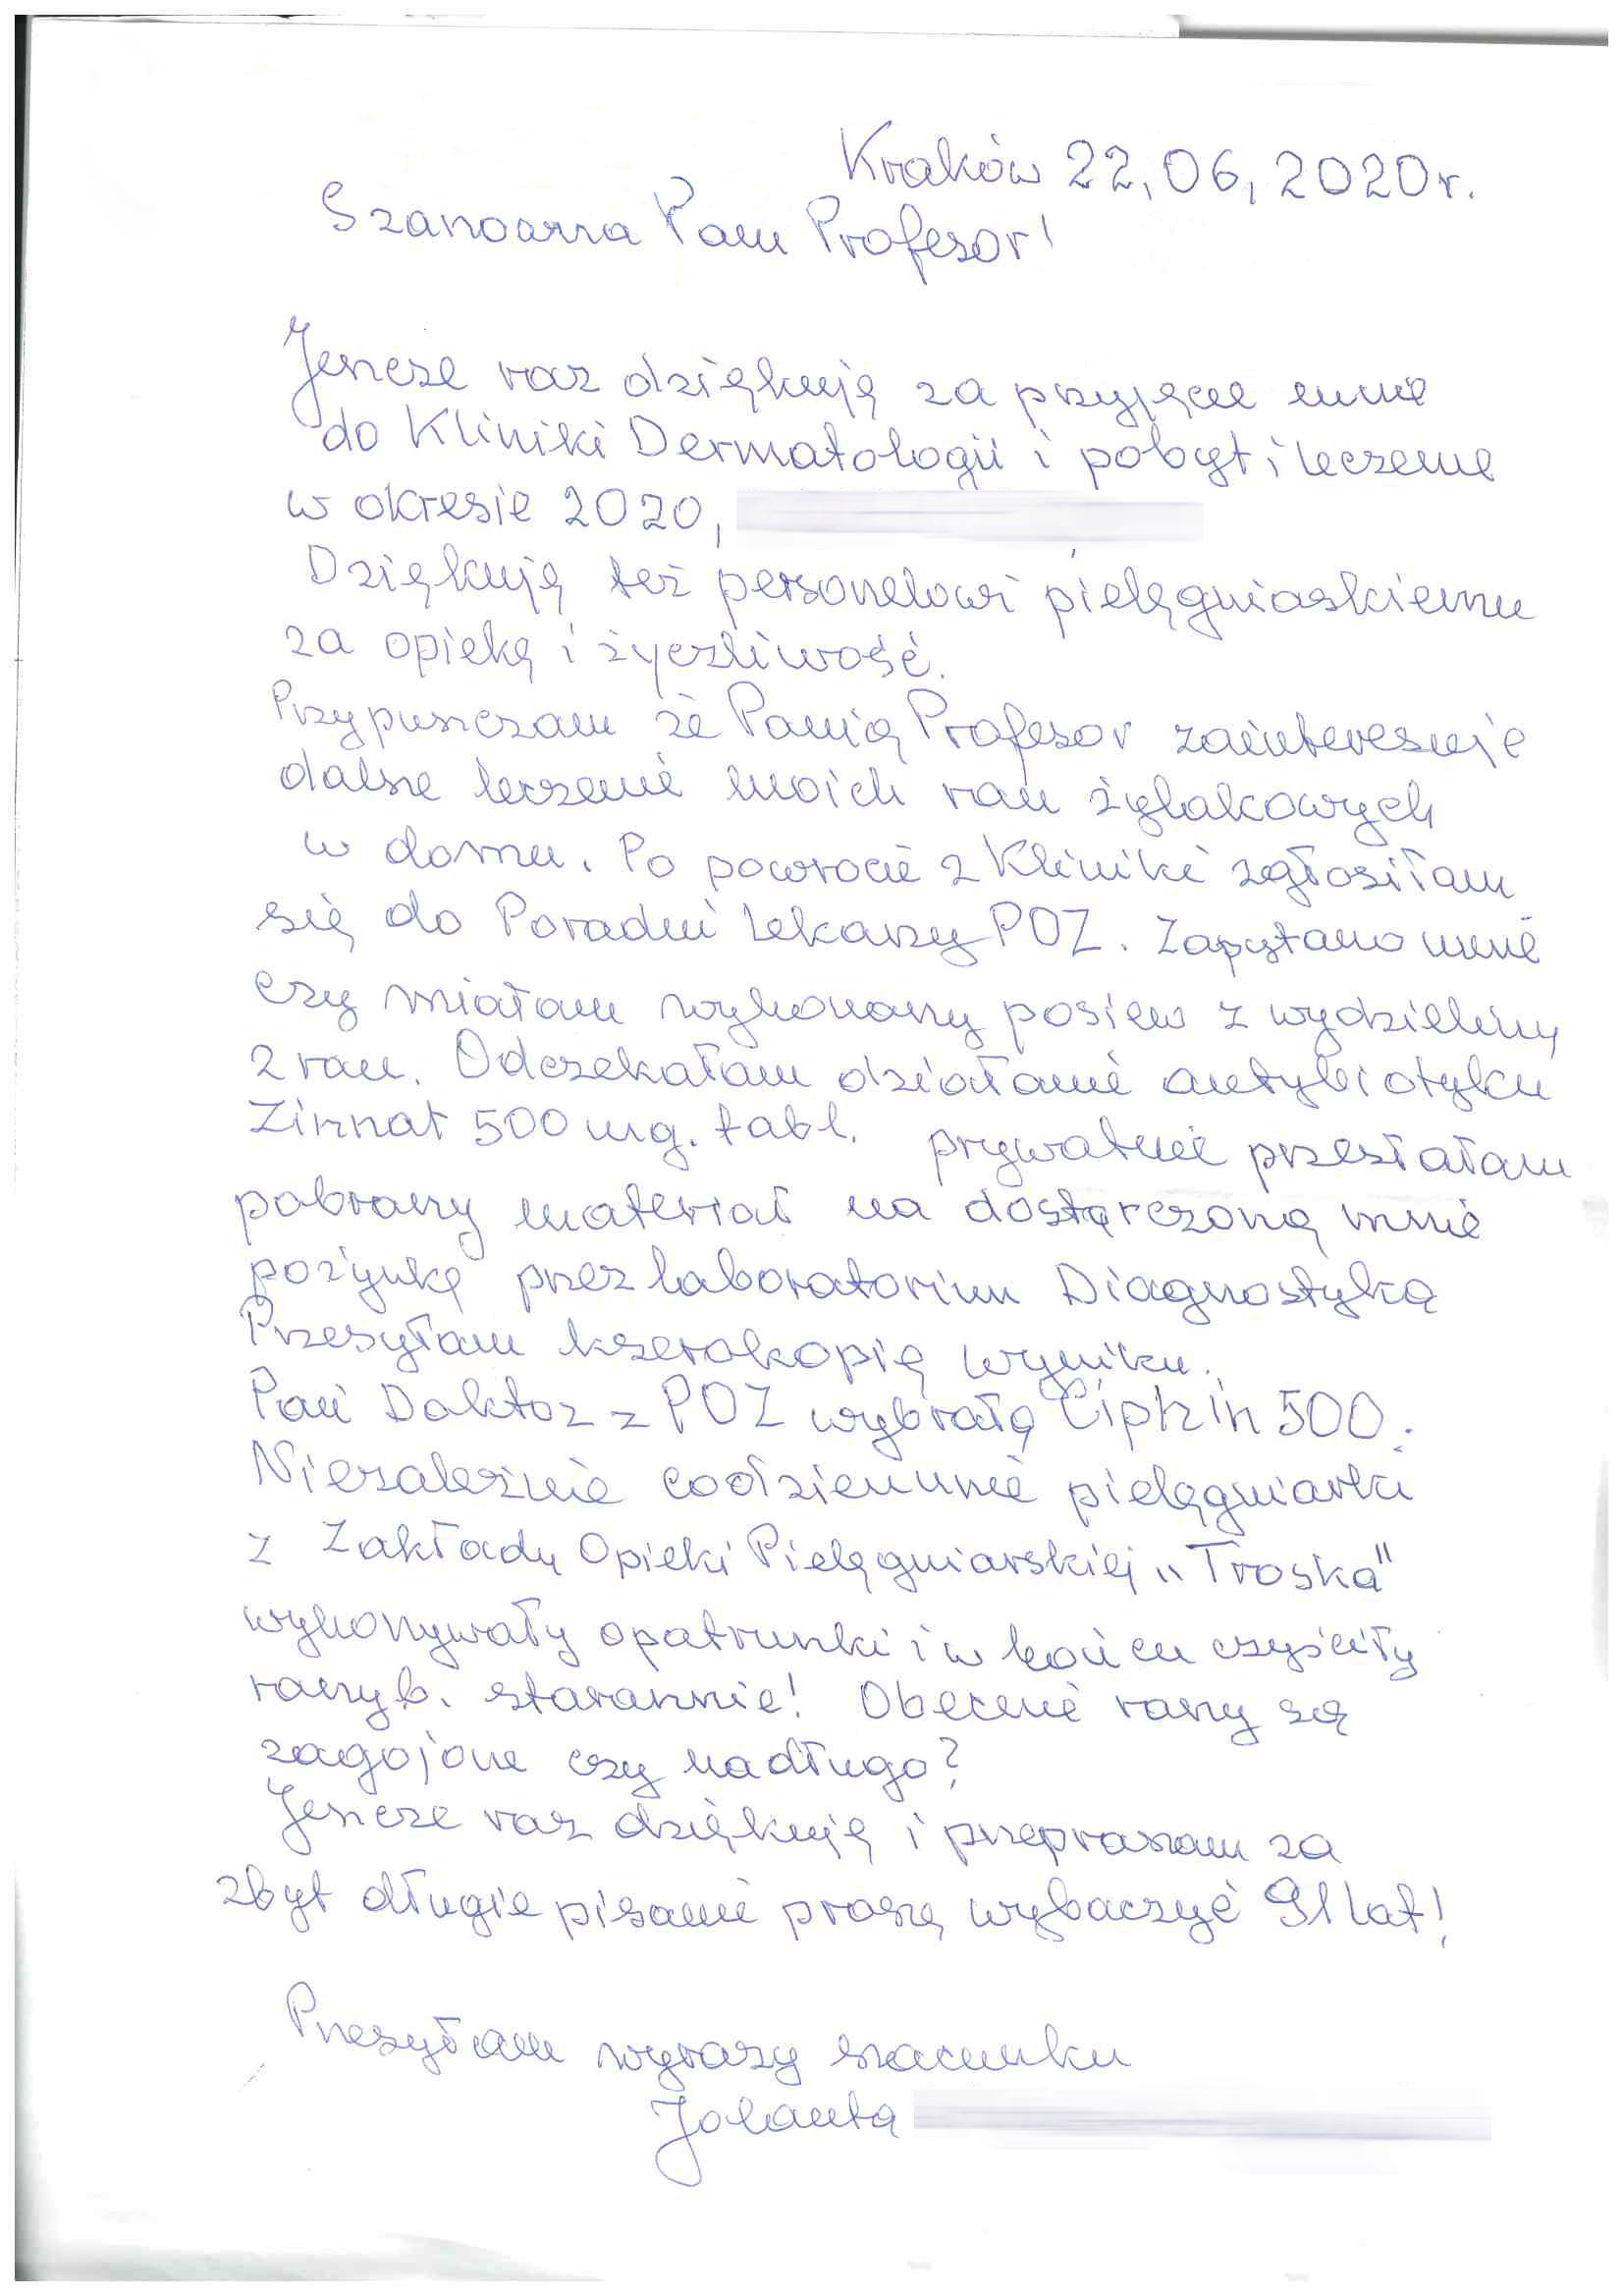 Kraków 22,06,2020r.
Szanowna Pani Profesor!
Jeszcze raz dziękuję za przyjęcie mnie
do Kliniki Dermatologii i pobyt i leczenie
w okresie 2020,
Dziękuję też personelowi pielęgniaskiemu
za opiekę i życzliwość.
Przypuszczam że Panią Profesor zainteresuje
dalsze leczenie moich ran żylakowych
w domu. Po powrocie z Kliniki zgłosiłam
się do Poradni Lekarzy POZ. Zapytano mnie
czy miałam wykonany posiew z wydzieliny
z ran. Odczekałam działanie antybiotyku
Zinnat 500 mg. tabl. prywatnie przesłałam
pobrany materiał na dostarczoną mnie
pożywkę przez laboratorium Diagnostyka
Przesyłam kserokopię wyniku.
Pani Doktor z POZ wybrała Ciphin 500.
Niezależnie codziennie pielęgniarki
z Zakładu Opieki Pielęgniarskiej „Troska"
wykonywały opatrunki i w końcu czyściły
rany b. starannie! Obecnie rany są
zagojone czy nadługo?
Jeszcze raz dziękuję i przepraszam za
zbyt długie pisanie proszę wybaczyć 91 lat!
Przesyłam wyrazy szacunku
Jolanta